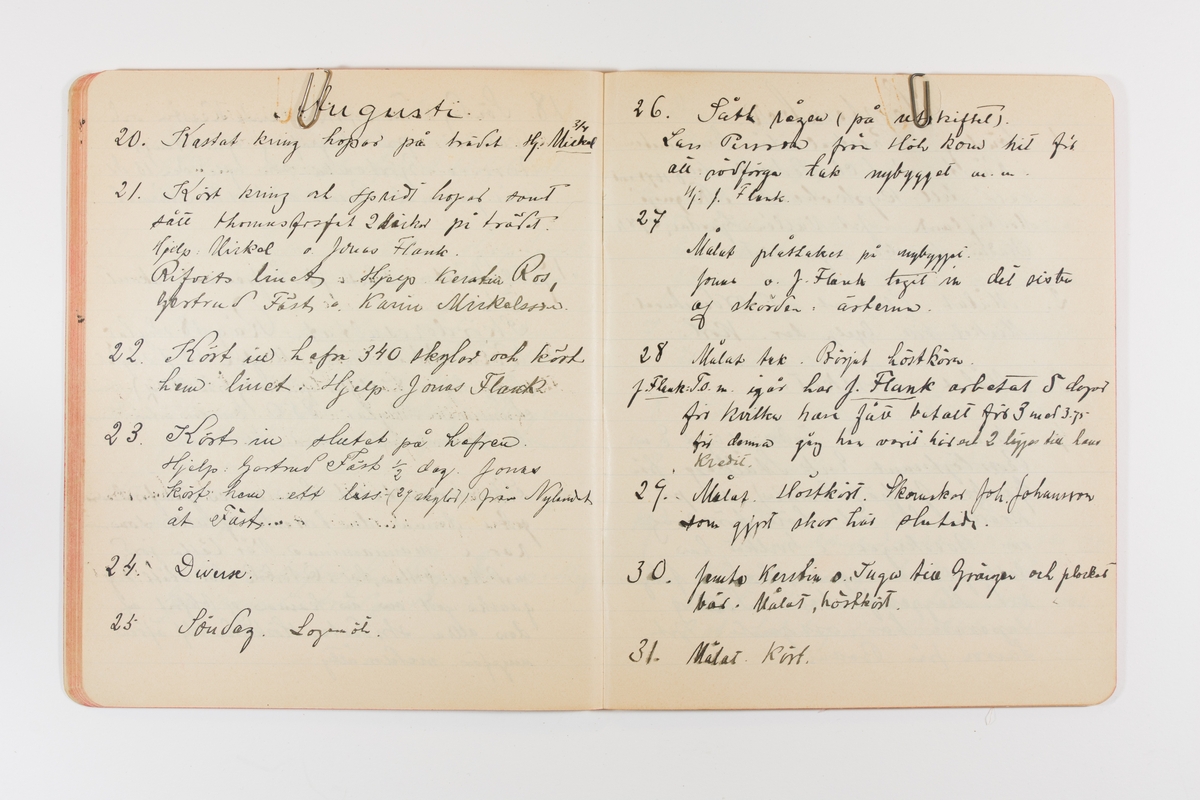 Augusti.
20. Kastat kring hopar på trädet. Hj. Mickel 3/4
21. Kört kring och spridt hopar samt
sått thomasfosfat 2 säckar på trädet.
Hjelp: Mickel o. Jonas Flank.
Rifvets linet: Hjelp Kerstin Ros,
Gertrud Fäst o. Karin Mickelsson.
22. Kört in hafre 340 skylar och kört
hem linet: Hjelp Jonas Flank
23. Kört in slutet på hafren.
Hjelp: Gertrud Fäst 1/2 dag. Jonas
kört hem ett lass (29 skylar) från Nylandet
åt Fäst...
24. Diverse.
25 Söndag. Logemöte.
26. Sått rågen (på utskiftet).
Lars Persson från kom hit för
att rödfärga tak nybygget m.m.
Hj. J. Flank.
27
Målat plåttaket på nybygget.
Jonas o. J. Flank taget in det sista
af skörden: ärterna.
28 Målat tak. Börjat höstköra.
J. Flank T.o.m. igår har J. Flank arbetat 5 dagar
för hvilka han fått betalt för 3 med 3.75
för denna gång han varit här och 2 ligger till hans
Kredit.
29. Målat. Höstkört. Skomakar Joh. Johansson
som gjort skor här slutade.
30. Jemte Kerstin o. Inga till Grängen och plockat
bär. Målat, höstkört.
31. Målat. Kört.